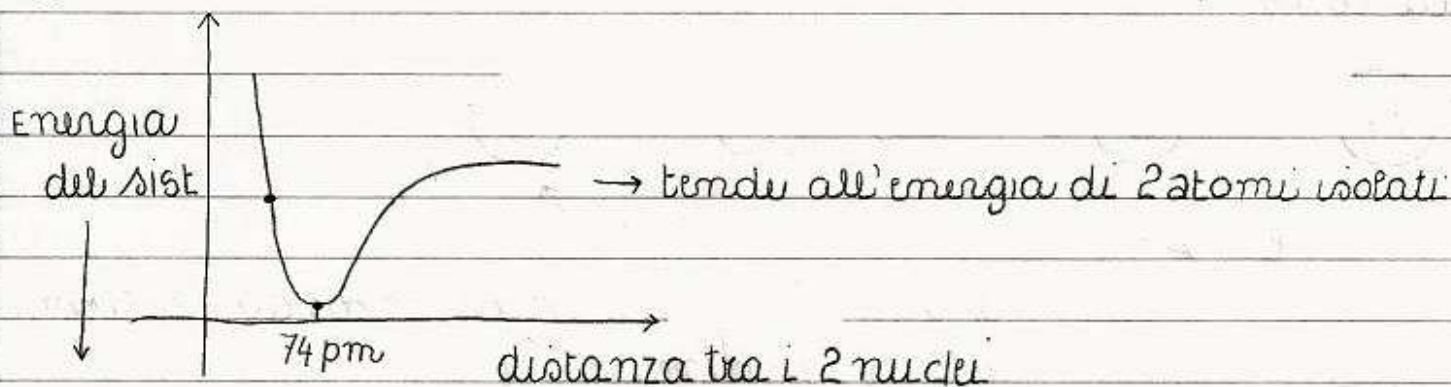 Energia
del sist
→ tende all'energia di 2 atomi isolati
74 pm
distanza tra i 2 nuclei